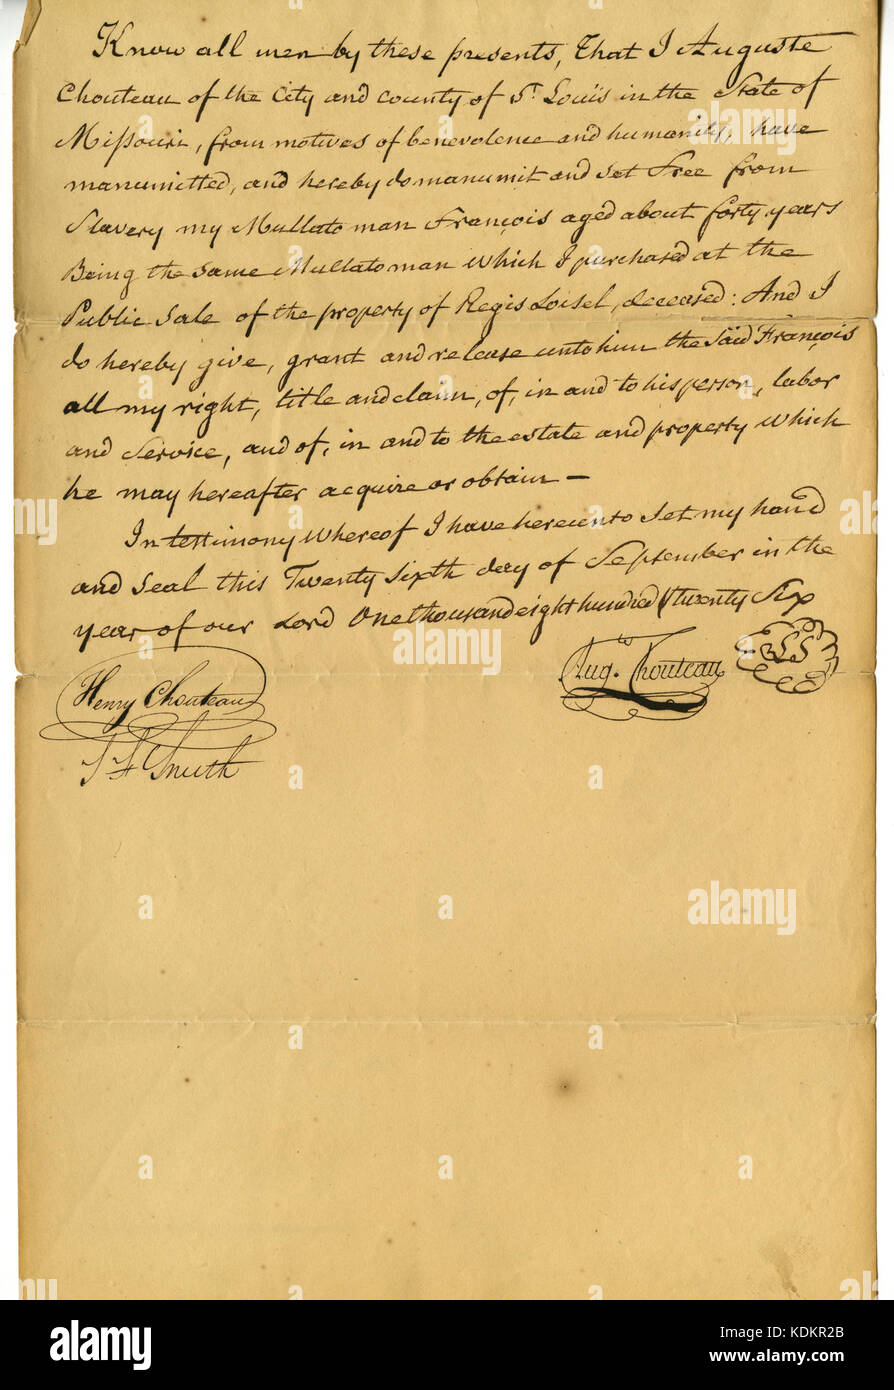 Know all men by these presents, That I Auguste
Chouteau of the City and County of St. Louis in the State of
Missouri, from motives of benevolence and humanity, have
manumitted, and hereby do manumit and set Free from
Slavery my Mullato man François aged about forty years
Being the same Mullato man which I purchased at the
Public Sale of the property of Regis Loisel, deceased: And I
do hereby give, grant and release unto him the said François
all my right, title and claim, of, in and to his person, labor
and Service, and of, in and to the estate and property which
he may hereafter acquire or obtain —
In testimony whereof I have hereunto set my hand
and seal this Twenty sixth day of September in the
year of our Lord One thousand eight hundred & twenty Six
Augte Chouteau LS
Henry Chouteau
Smith
a alamy
alamy
Image ID: KDKR2B
www.alamy.com